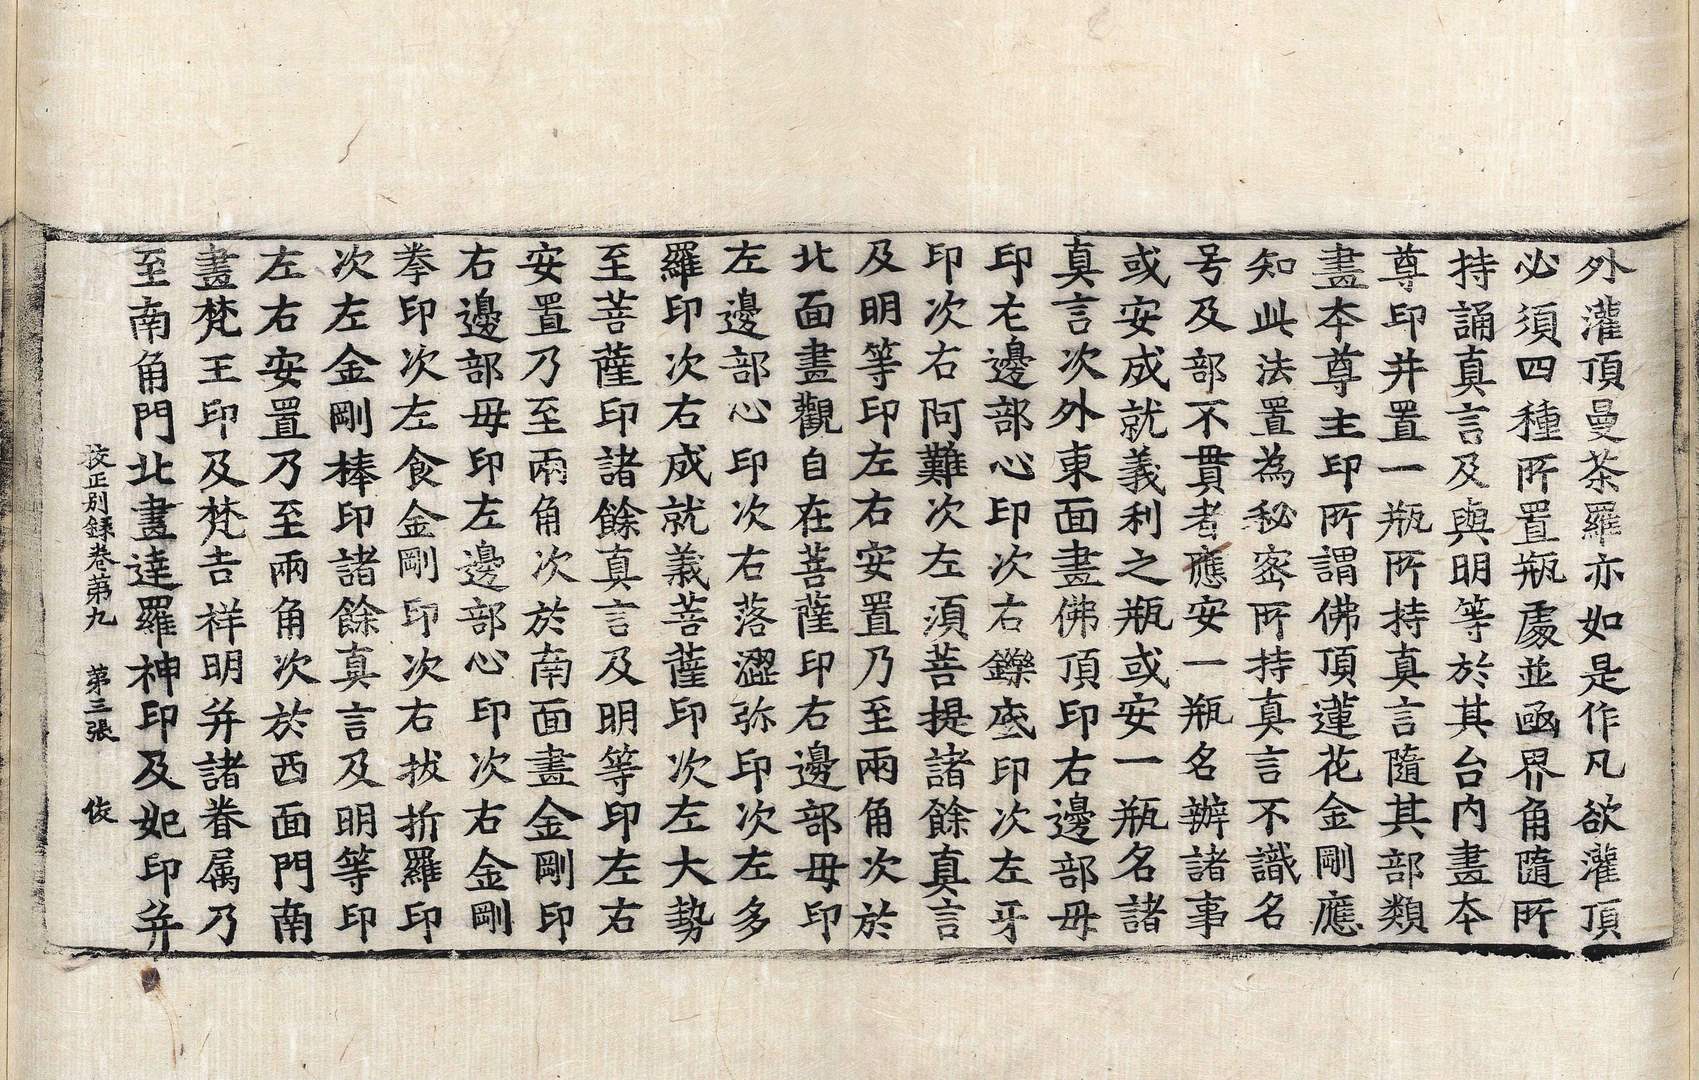 外灌頂曼荼羅亦如是作凡欲灌頂
必須四種所置瓶處並㔶界角隨所
持誦真言及與明等於其台內畫本
尊印并置一瓶所持真言隨其部類
畫本尊主印所謂佛頂蓮花金剛應
知此法置為秘密所持真言不識名
号及部不貫者應安一瓶名辦諸事
或安成就義利之瓶或安一瓶名諸
真言次外東面畫佛頂印右邊部毋
印左邊部心印次右鑠底印次左牙
印次右阿難次左須菩提諸餘真言
及明等印左右安置乃至兩角次於
北面畫觀自在菩薩印右邊部毋印
左邊部心印次右落澀弥印次左多
羅印次右成就義菩薩印次左大勢
至菩薩印諸餘真言及明等印左右
安置乃至兩角次於南面畫金剛印
右邊部毋印左邊部心印次右金剛
拳印次左食金剛印次右拔折羅印
次左金剛棒印諸餘真言及明等印
左右安置乃至兩角次於西面門南
畫梵王印及梵吉祥明并諸眷属乃
至南角門北畫達羅神印及妃印并
校正別錄卷第九　第三張　俊